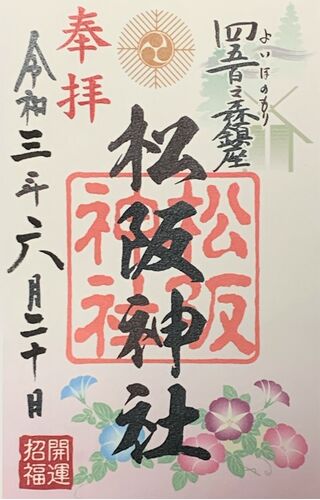 四五百之森鎮座
よいほのもり
奉拝
松阪神社
松阪神社
令和三年六月二十日
開運招福